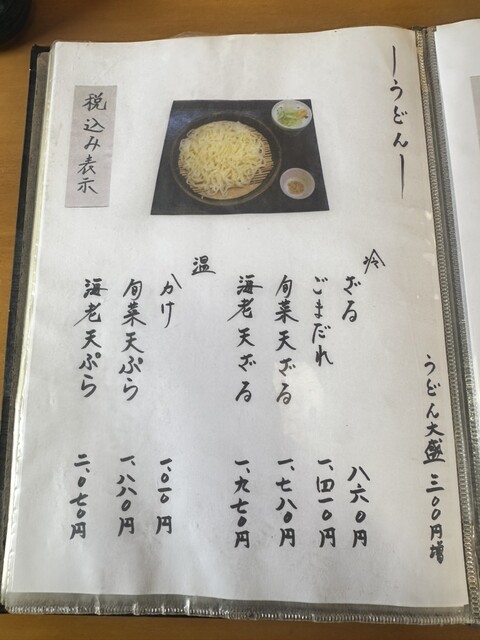 ーうどんー
うどん大盛 三〇〇円増
冷
ざる 八六〇円
ごまだれ 一、四一〇円
旬菜天ざる 一、七八〇円
海老天ざる 一、九七〇円
温
かけ 一、〇一〇円
旬菜天ぷら 一、八八〇円
海老天ぷら 二、〇七〇円
税込み表示